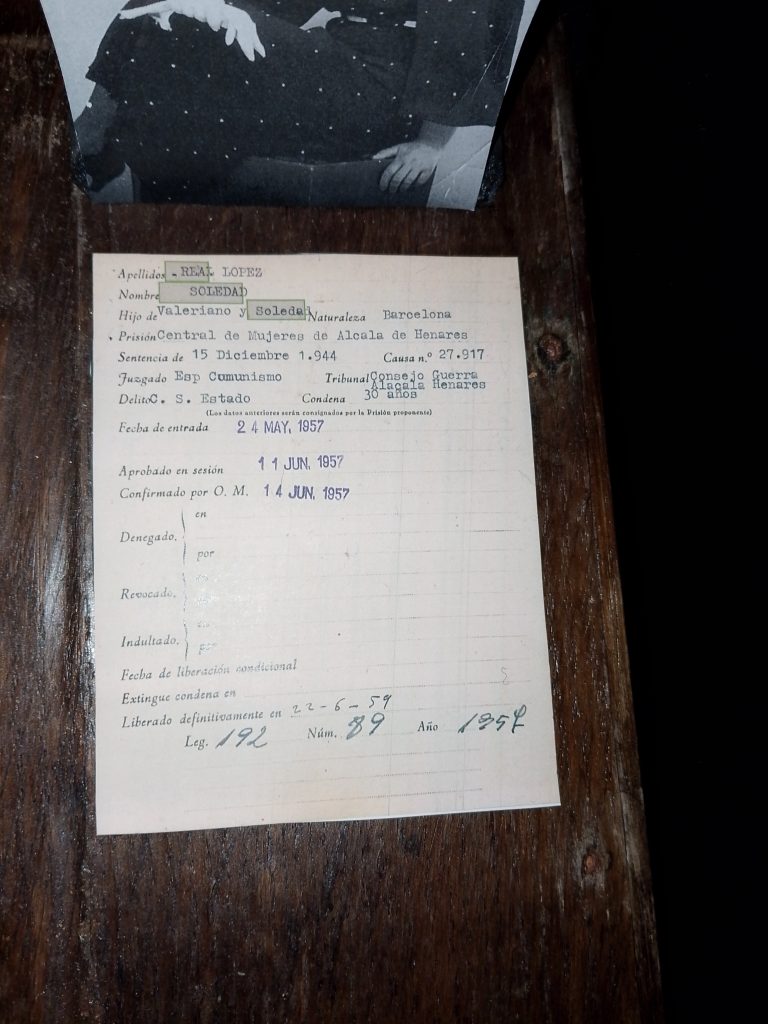 Apellidos REAL LOPEZ
Nombre SOLEDAD
Hijo de Valeriano y Soledad Naturaleza Barcelona
Prisión Central de Mujeres de Alcala de Henares
Sentencia de 15 Diciembre 1.944 Causa n.º 27.917
Juzgado Esp Comunismo Tribunal Consejo Guerra
Alacala Henares
Delito C. S. Estado Condena 30 años
(Los datos anteriores serán consignados por la Prisión proponente)
Fecha de entrada 24 MAY. 1957
Aprobado en sesión 11 JUN. 1957
Confirmado por O. M. 14 JUN. 1957
en
Denegado.
por
en
Revocado.
en
Indultado.
por
Fecha de liberación condicional
Extingue condena en
Liberado definitivamente en 22-6-59
Leg. 192 Núm. 89 Año 1957